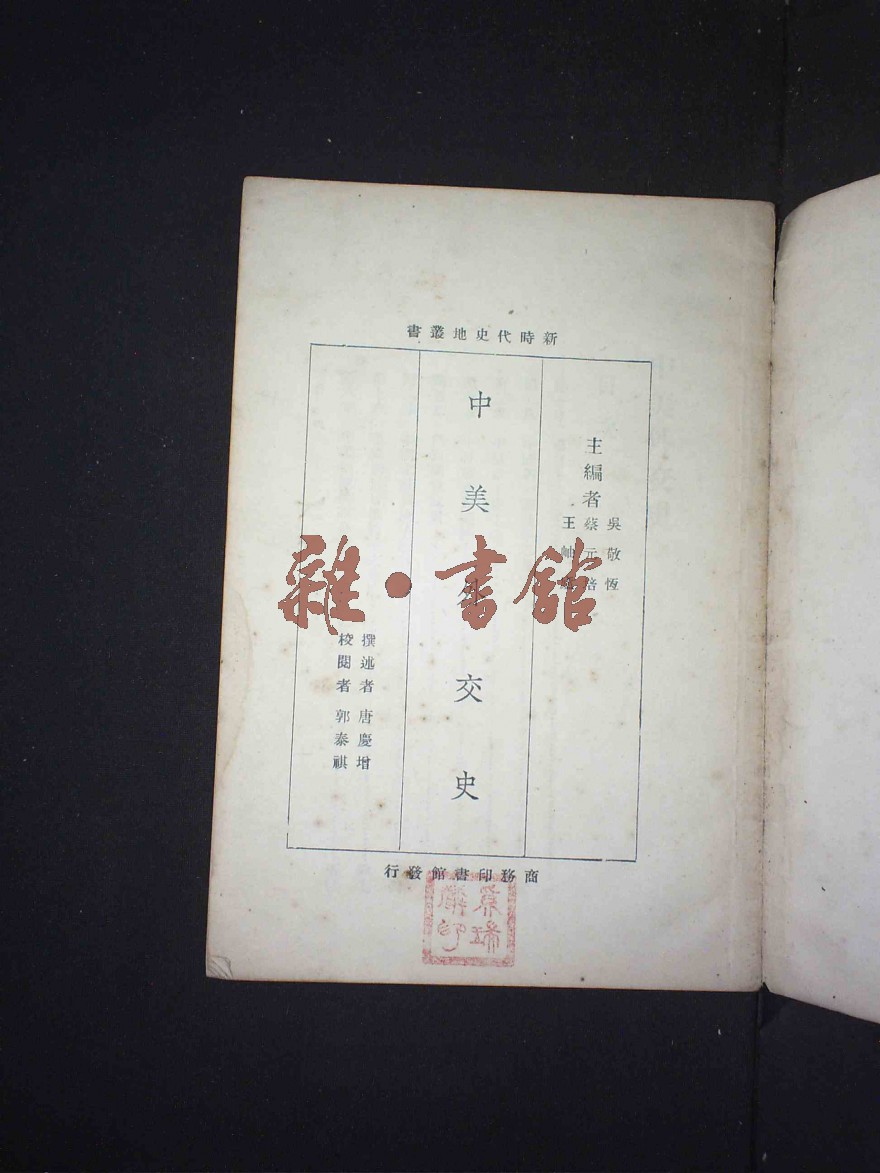 新時代史地叢書
主編者
吳敬恆
蔡元培
王岫廬
中美外交史
撰述者 唐慶增
校閱者 郭泰祺
商務印書館發行
雜·書館